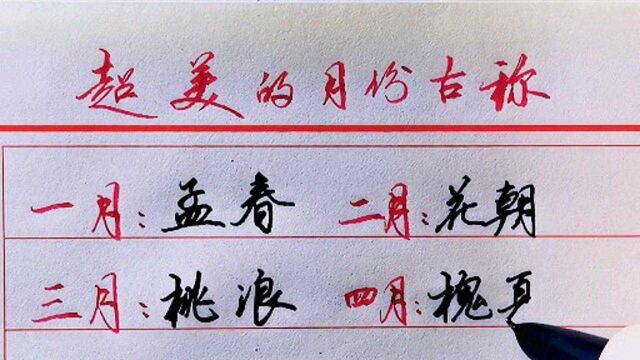 超美的月份古称
一月：孟春 二月：花朝
三月：桃浪 四月：槐夏